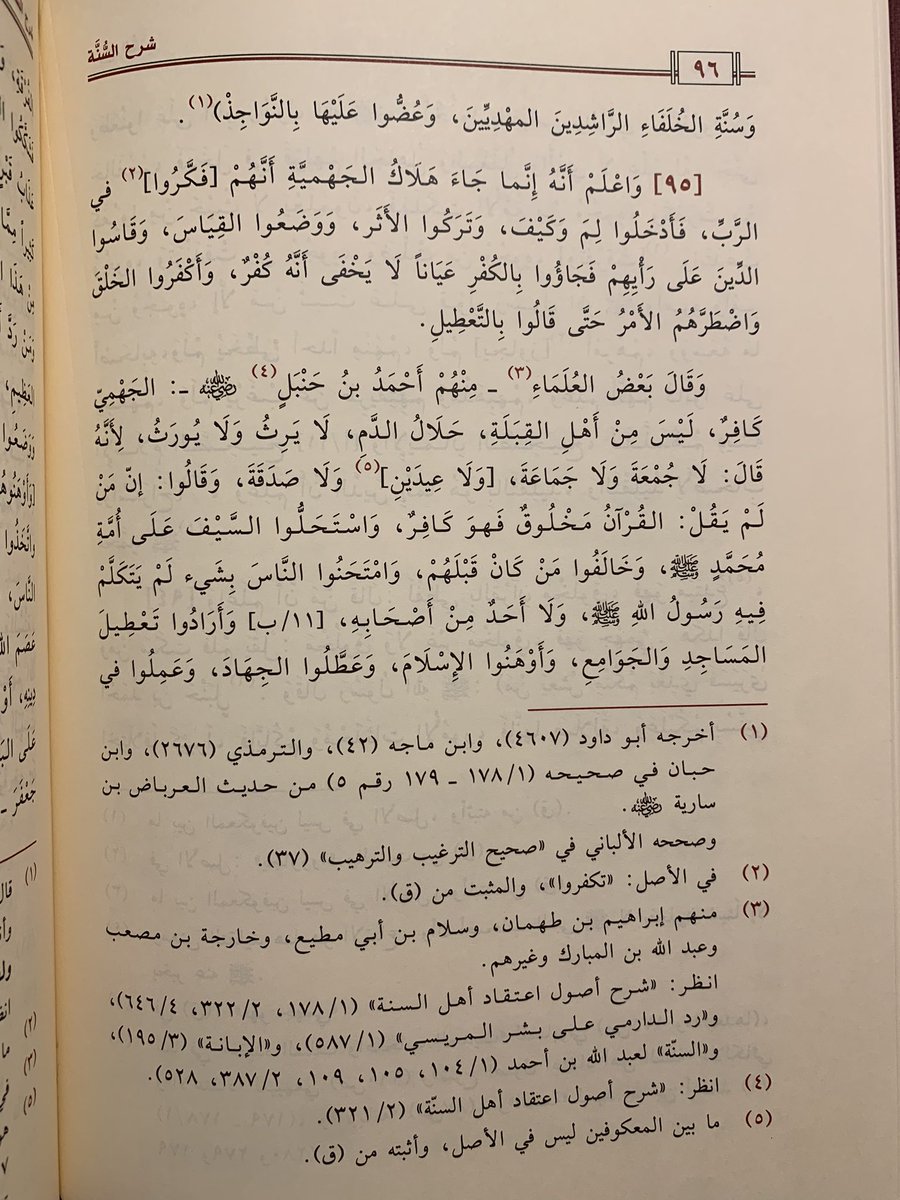 شرح السُّنَّة
٩٦
وَسُنَّةِ الخُلَفَاءِ الرَّاشِدِينَ المهْدِيِّينَ، وَعُضُّوا عَلَيْهَا بِالنَّوَاجِذْ)(١) .
[٩٥] وَاعْلَمْ أَنَّهُ إِنَّما جَاءَ هَلَاكُ الجَهْمِيَّةِ أَنَّهُمْ [فَكَّرُوا](٢) في
الرَّبِّ، فَأَدْخَلُوا لِمَ وَكَيْفَ، وَتَرَكُوا الأَثَر، وَوَضَعُوا القِيَاسَ، وَقَاسُوا
الدِّينَ عَلَى رَأْيِهِمْ فَجَاؤُوا بِالكُفْرِ عَيَاناً لَا يَخْفَى أَنَّهُ كُفْرٌ، وَأَكْفَرُوا الخَلْقَ
وَاضْطَرَّهُمُ الأَمْرُ حَتَّى قَالُوا بِالتَّعْطِيلِ.
وَقَالَ بَعْضُ العُلَمَاءِ(٣) ـ مِنْهُمْ أَحْمَدُ بنُ حَنْبَلٍ(٤) رضي الله عنه ـ: الجَهْمِيّ
كَافِرٌ، لَيْسَ مِنْ أَهْلِ القِبَلَةِ، حَلَالُ الدَّمِ، لَا يَرِثُ وَلَا يُورَثُ، لِأَنَّهُ
قَالَ: لَا جُمْعَةَ وَلَا جَمَاعَةَ، [وَلَا عِيدَيْنِ](٥) وَلَا صَدَقَةَ، وَقَالُوا: إنّ مَنْ
لَمْ يَقُلْ: القُرْآنُ مَخْلُوقٌ فَهوَ كَافِرٌ، وَاسْتَحَلُّوا السَّيْفَ عَلَى أُمَّةِ
مُحَمَّدٍ ﷺ، وَخَالَفُوا مَنْ كَانَ قَبْلَهُمْ، وَامْتَحَنُوا النَّاسَ بِشَيء لَمْ يَتَكَلَّمْ
فِيهِ رَسُولُ اللهِ ﷺ، وَلَا أَحَدٌ مِنْ أَصْحَابِهِ، [١١/ب] وَأَرَادُوا تَعْطِيلَ
المَسَاجِدِ وَالجَوَامِعِ، وَأَوْهَنُوا الإِسْلَامَ، وَعَطَّلُوا الجِهَادَ، وَعَمِلُوا في
(١) أخرجه أبو داود (٤٦٠٧)، وابن ماجه (٤٢)، والترمذي (٢٦٧٦)، وابن
حبان في صحيحه (١٧٨/١ ـ ١٧٩ رقم ٥) من حديث العرباض بن
سارية رضي الله عنه.
وصححه الألباني في «صحيح الترغيب والترهيب» (٣٧).
(٢) في الأصل: «تكفروا»، والمثبت من (ق).
(٣) منهم إبراهيم بن طهمان، وسلام بن أبي مطيع، وخارجة بن مصعب
وعبد الله بن المبارك وغيرهم.
انظر: «شرح أصول اعتقاد أهل السنة» (١٧٨/١، ٣٢٢/٢، ٦٤٦/٤)،
و«رد الدارمي على بشر المريسي» (٥٨٧/١)، و«الإبانة» (١٩٥/٣)،
و«السنّة» لعبد الله بن أحمد (١٠٤/١، ١٠٥، ١٠٩، ٣٨٧/٢، ٥٢٨).
(٤) انظر: «شرح أصول اعتقاد أهل السنّة» (٣٢١/٢).
(٥) ما بين المعكوفين ليس في الأصل، وأثبته من (ق).